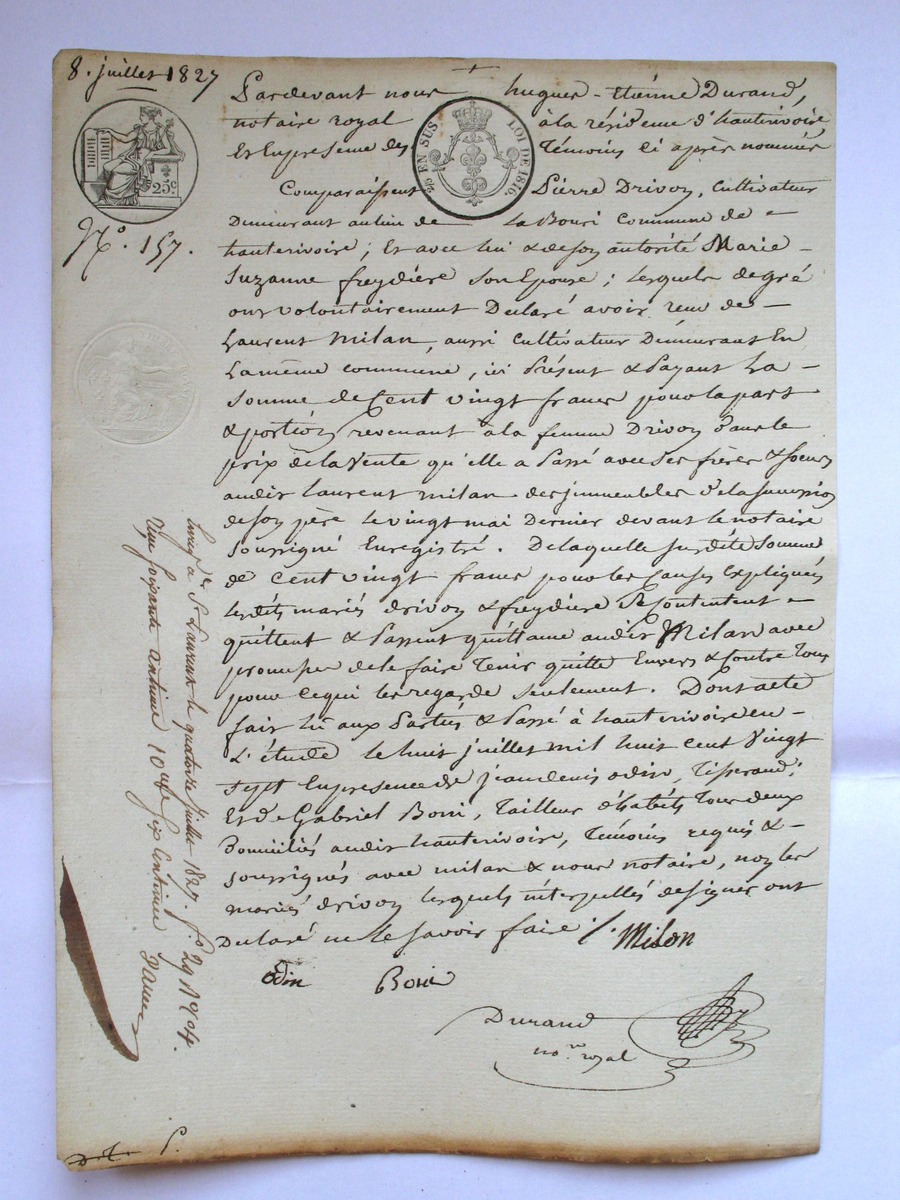 8. juillet 1827
25c
EN SUS
LOI DE 1816.
N.º 157.
Pardevant nous hugues-Etiénne Durand,
notaire royal à la résidence d'hauterivoire
Et En presence des témoins ci après nommés
Comparaissent Pierre Drivon, Cultivateur
Demeurant au lieu de la Bouri Commune de
hauterivoire; Et avec lui & de son autorité Marie
Suzanne freydière son Epouse; lesquels de gré
ont volontairement Declaré avoir reçu de
Laurent Milan, aussi Cultivateur Demeurant En
la même commune, ici Présent & Payant la
Somme de Cent vingt francs pour la part
& portion revenant à la femme Drivon dans le
prix de la Vente qu'elle a Passé avec Ses frères & soeurs
audit laurent milan des immeubles de la succession
de son père le vingt mai Dernier devant le notaire
soussigné Enregistré. De laquelle susdite Somme
de Cent vingt francs pour les Causes Expliqués
lesdits mariés drivon & freydière Se Contentent
quittent & Passent quittance audit Milan avec
promesse de le faire tenir quitte Envers & Contre tous
pour ce qui les regarde seulement. Dont acte
fait lu aux Parties & Passé à hauterivoire en
L'étude le huit juillet mil huit cent Vingt
Sept En presence de jean denis odin, Tisserand;
Et de Gabriel Boni, tailleur d'habits tous deux
Domiciliés audit hauterivoire, témoins requis &
soussignés avec milan & nous notaire, non les
mariés drivon lesquels interpellés de signer ont
Declaré ne le savoir faire. l. Milon
odin Boni
Durand
no.re royal
Enreg. à St Laurent le quatorze juillet 1827. fo 29 No C4.
Reçu soixante centimes 10me six Centimes
P.